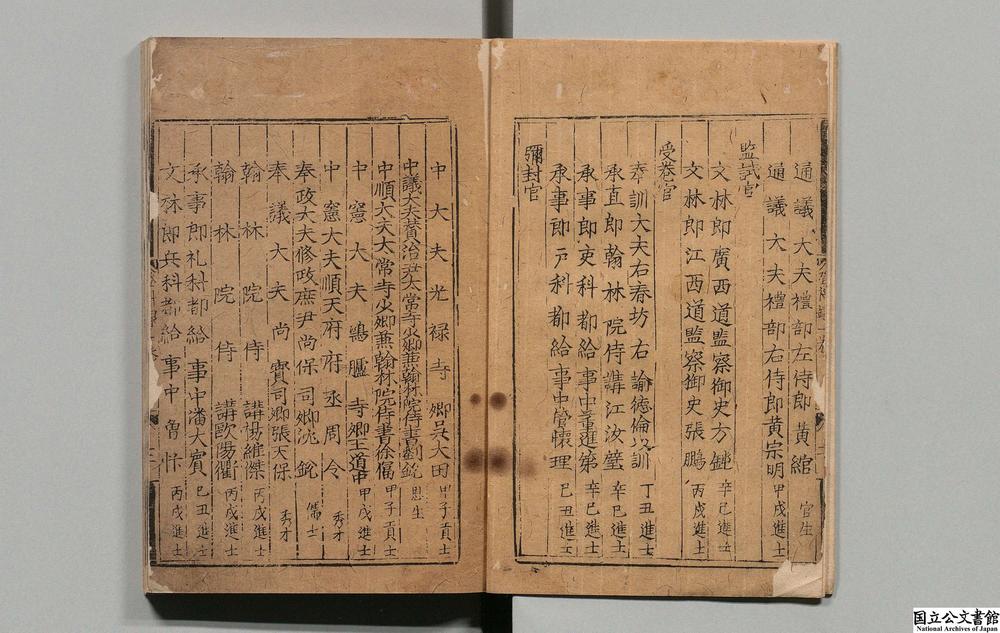 通議大夫禮部左侍郎黄綰 官生
通議大夫禮部右侍郎黄宗明 甲戌進士
監試官
文林郎廣西道監察御史方鍾 辛巳進士
文林郎江西道監察御史張鵬 丙戌進士
受卷官
奉訓大夫右春坊右諭德倫以訓 丁丑進士
承直郎翰林院侍講江汝璧 辛巳進士
承事郎吏科都給事中董進第 辛巳進士
承事郎戸科都給事中管懷理 己丑進士
彌封官
中大夫光禄寺卿吳大田 甲子貢士
中議大夫賛治尹太常寺少卿兼翰林院侍書劉銳 恩生
中順大夫太常寺少卿兼翰林院侍書徐富 甲子貢士
中憲大夫鴻臚寺卿王道中 甲戌進士
中憲大夫順天府府丞周令 秀才
奉政大夫修政庶尹尚保司卿沈銳 儒士
奉議大夫尚寳司卿張天保 秀才
翰林院侍講楊維傑 丙戌進士
翰林院侍講歐陽衢 丙戌進士
承事郎礼科都給事中潘大賓 己丑進士
文林郎兵科都給事中魯 丙戌進士
国立公文書館
National Archives of Japan